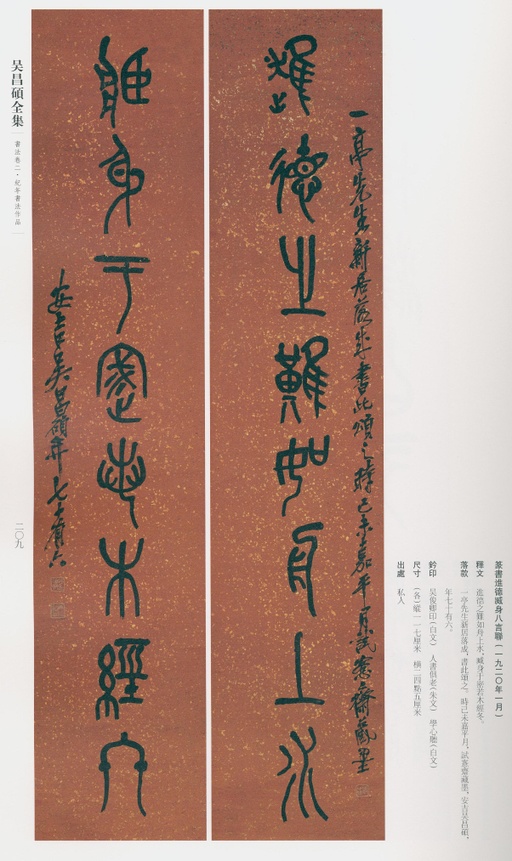 篆書進德臧身八言聯(一九二〇年一月)
釋文 進德之難如舟上水,臧身于密若木經冬。
落款 一亭先生新居落成,書此頌之。時己未嘉平月,試愙齋藏墨,安吉吳昌碩,
年七十有六。
鈐印 吴俊卿印(白文) 人書俱老(朱文) 學心聽(白文)
尺寸 (各)縱一一七厘米 橫二四點五厘米
出處 私人
一亭先生新居落成書此頌之時己未嘉平月試愙齋藏墨
進德之難如舟上水
臧身于密若木經冬
安吉吳昌碩年七十有六
吴昌碩全集
書法卷二·紀年書法作品
二〇九